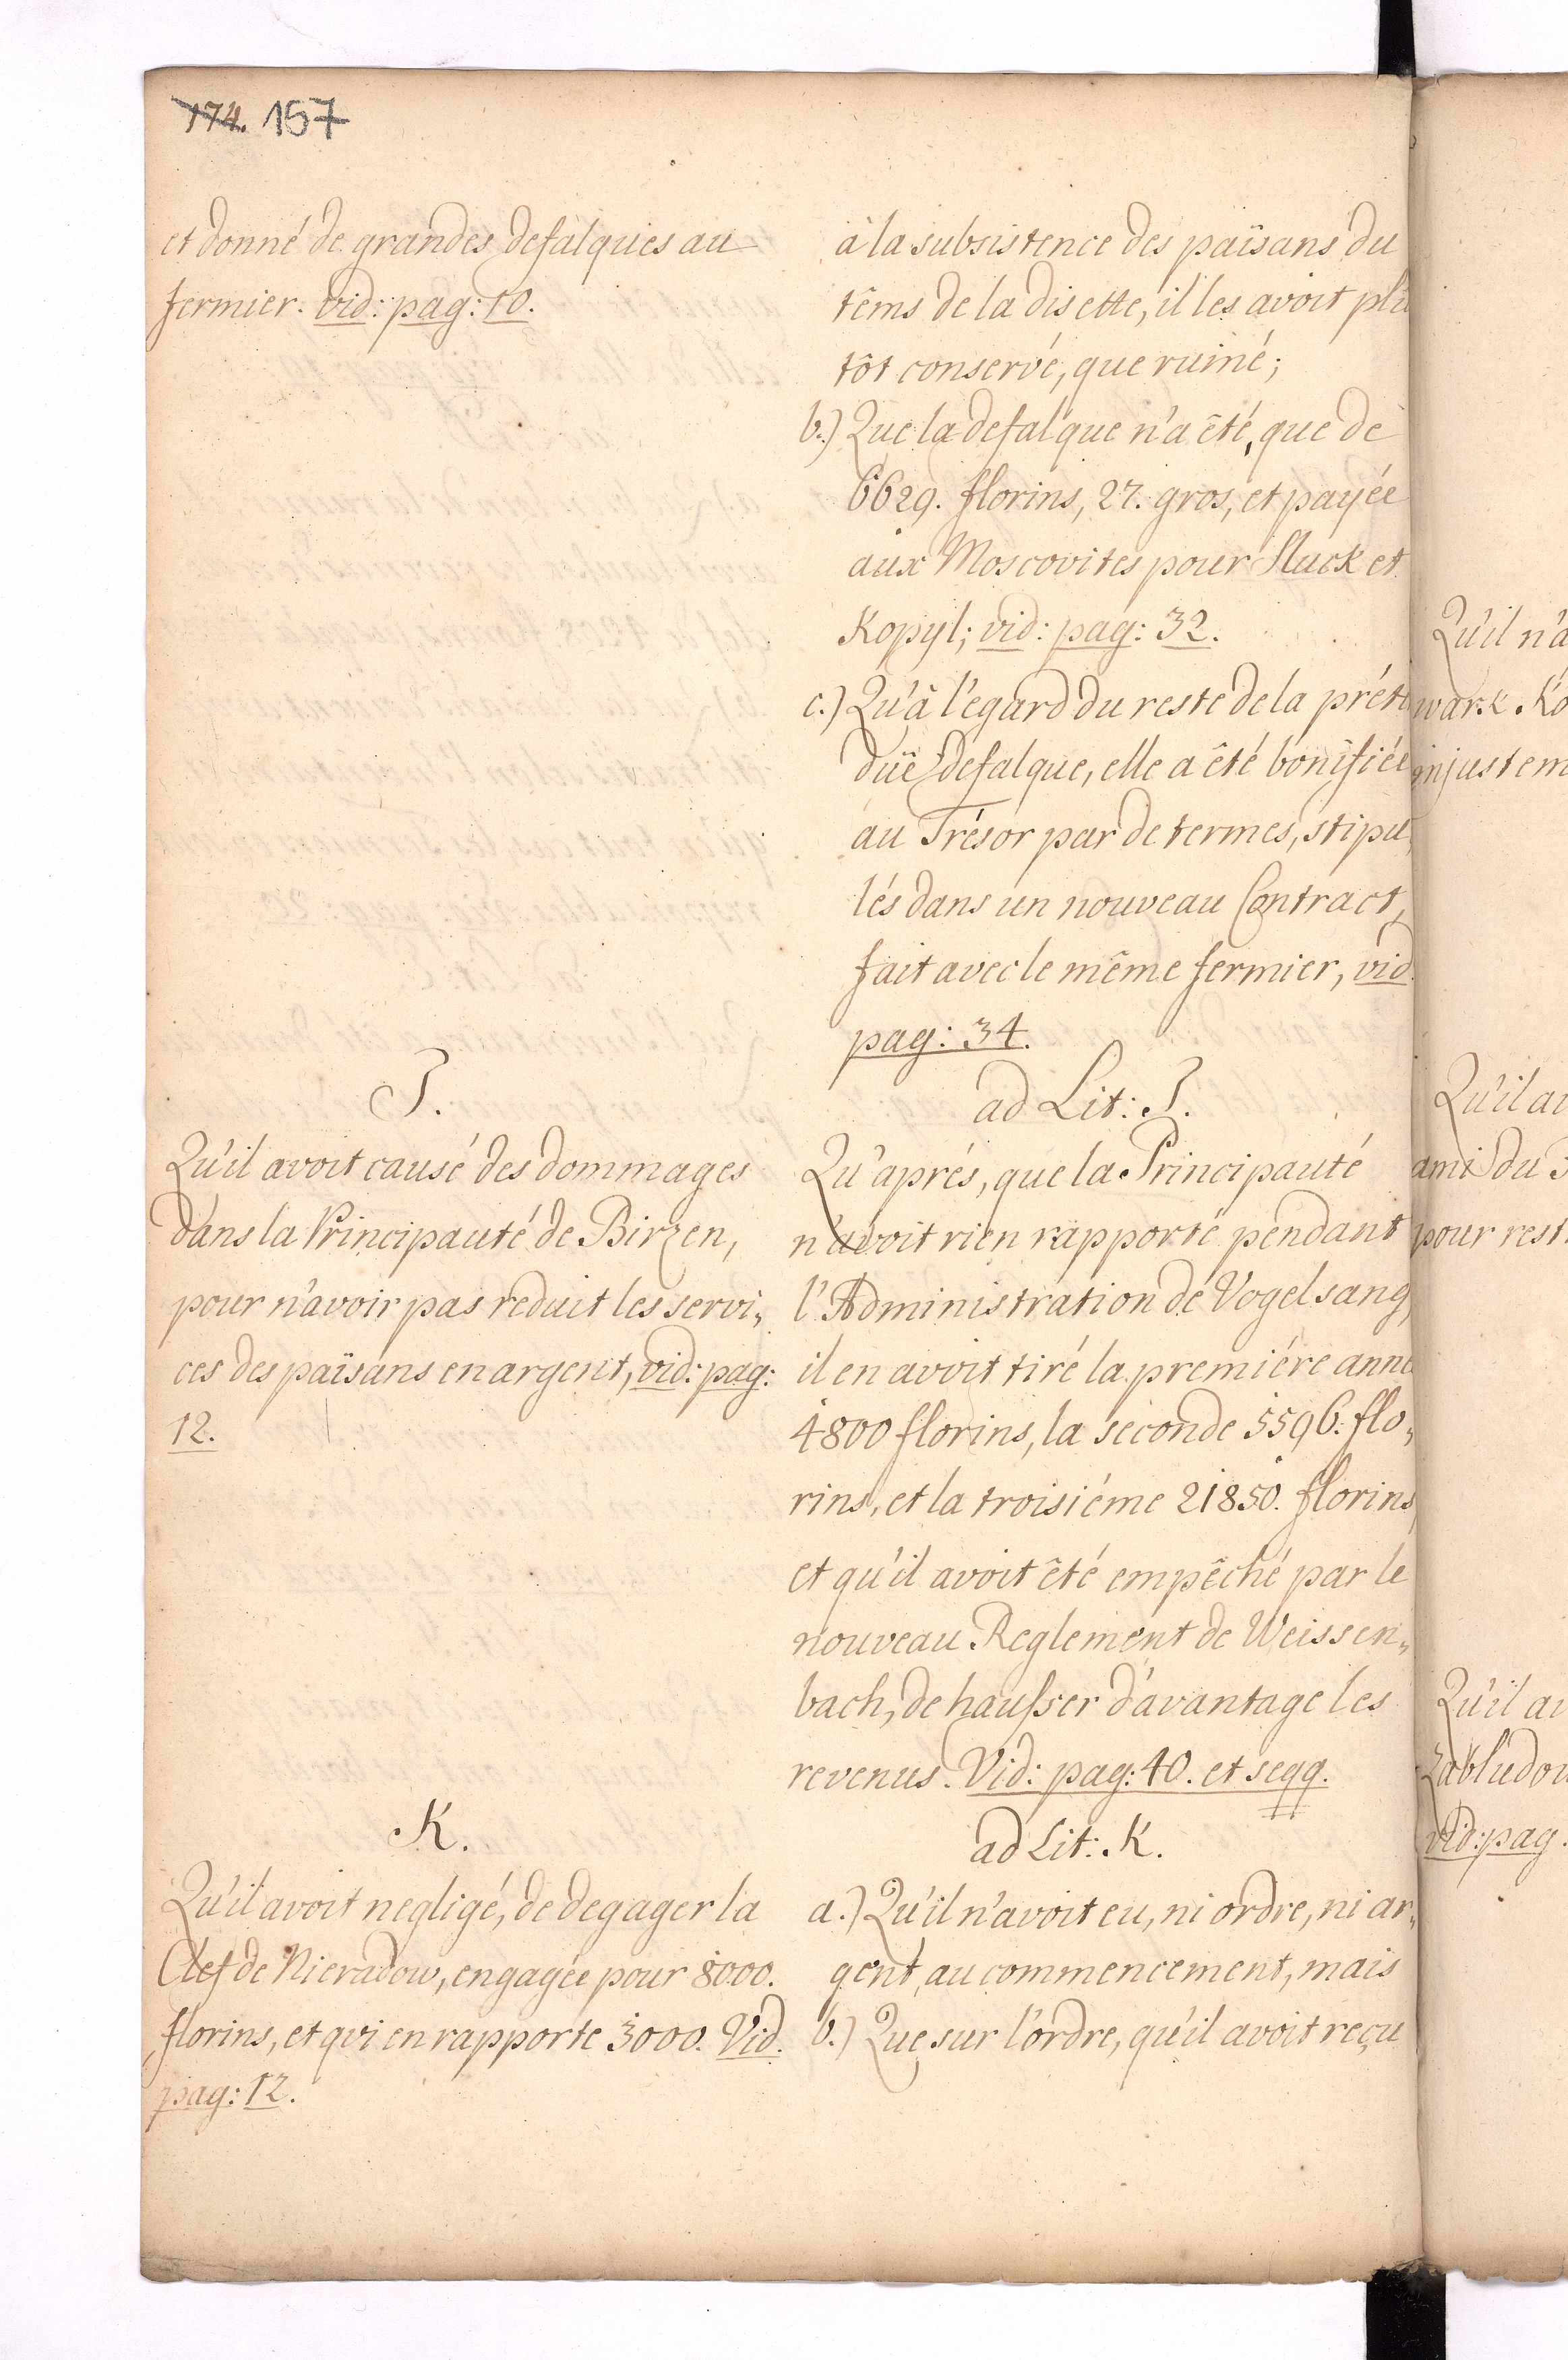 174. 157
et donné de grandes defalques au
fermier. vid: pag: 10.
J.
Qu'il avoit causé des dommages
dans la Principauté de Birzen,
pour n'avoir pas reduit les servi„
ces des païsans en argent, vid: pag:
12.
K.
Qu'il avoit negligé, de degager la
Clef de Nieradow, engagée pour 8000.
florins, et qvi en rapporte 3000. Vid.
pag: 12.
à la subsistence des païsans du
têms de la disette, il les avoit plû
tôt conservé, que ruiné;
b.) Que la defalque n'a êté, que de
6629. florins, 27. gros, et payée
aux Moscovites pour Sluck et
Kopyl; vid: pag: 32.
c.) Qu'à l'egard du reste de la préte
duë defalque, elle a êté bonifiée
au Trésor par de termes, stipu„
lés dans un nouveau Contract,
fait avec le même fermier, vid
pag: 34.
ad Lit: J.
Qu'aprés, que la Principauté
n'avoit rien rapporté pendant
l'Administration de Vogelsang,
il en avoit tiré la premiére anné
4800 florins, la seconde 5596. flo„
rins, et la troisiéme 21850. florins,
et qu'il avoit êté empêché par le
nouveau Reglement de Weissen„
bach, de hausser d'avantage les
revenus. Vid: pag: 40. et seqq.
ad Lit: K.
a.) Qu'il n'avoit eu, ni ordre, ni ar„
gent, au commencement, mais
b.) Que sur l'ordre, qu'il avoit reçu
Qu'il n'a
wark Ko
injustem
Qu'il av
ami du
pour rest
Qu'il av
Zabludow
vid: pag.